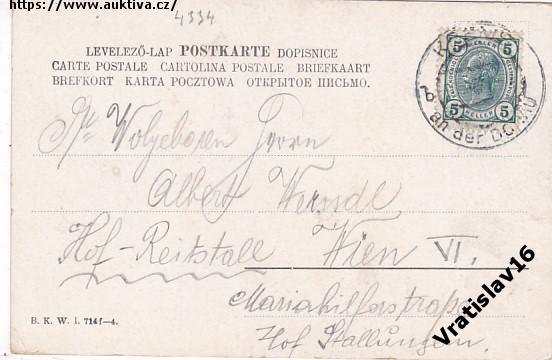 https://www.auktiva.cz/
4334
LEVELEZŐ-LAP POSTKARTE DOPISNICE
CARTE POSTALE CARTOLINA POSTALE BRIEFKAART
BREFKORT KARTA POCZTOWA ОТКРЫТОЕ ПИСЬМО.
5 5
HELLER
5 5
HELLER
an der DONAU
Wolgeboren Herrn
Albert Werndl
Hof-Reitstall Wien VI.
Mariahilferstraße
Hof Stallungen.
B. K. W. I. 714f—4.
Vratislav16